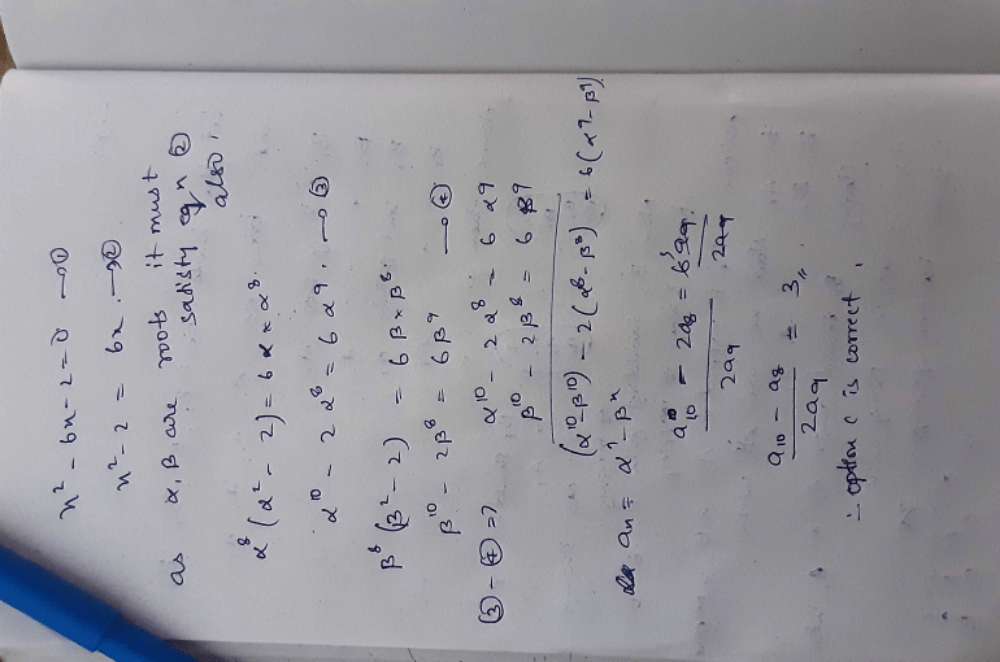 x² - 6x - 2 = 0 —①
x² - 2 = 6x. —②
as α, β are roots it must
satisfy eqn ②
also.
α⁸ (α² - 2) = 6 α × α⁸.
α¹⁰ - 2 α⁸ = 6 α⁹. —③
β⁸ (β² - 2) = 6 β × β⁸.
β¹⁰ - 2β⁸ = 6β⁹ —④
③ - ④ =>
α¹⁰ - 2α⁸ = 6 α⁹
β¹⁰ - 2β⁸ = 6 β⁹
(α¹⁰ - β¹⁰) - 2 (α⁸ - β⁸) = 6 (α⁹ - β⁹)
an = αⁿ - βⁿ
a₁₀ - 2a₈ / 2a₉ = 6a₉ / 2a₉
a₁₀ - a₈ / 2a₉ = 3
∴ option C is correct.